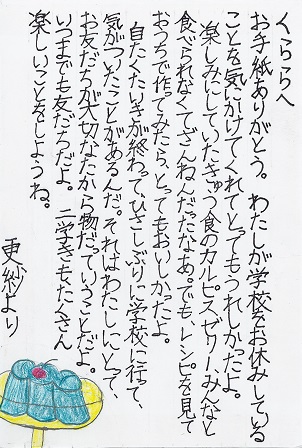 くららへ
お手紙ありがとう。わたしが学校をお休みしている
ことを気にかけてくれてとってもうれしかったよ。
楽しみにしていたきゅう食のカルピスゼリー、みんなと
食べられなくてざんねんだったなあ。でも、レシピを見て
おうちで作てみたら、とってもおいしかったよ。
自たくたいきが終わってひさしぶりに学校に行って、
気がついたことがあるんだ。それはわたしにとって、
お友だちが大切なたから物だっていうことだよ。
いつまでも友だちだよ。二学きも、たくさん
楽しいことをしようね。
更紗より